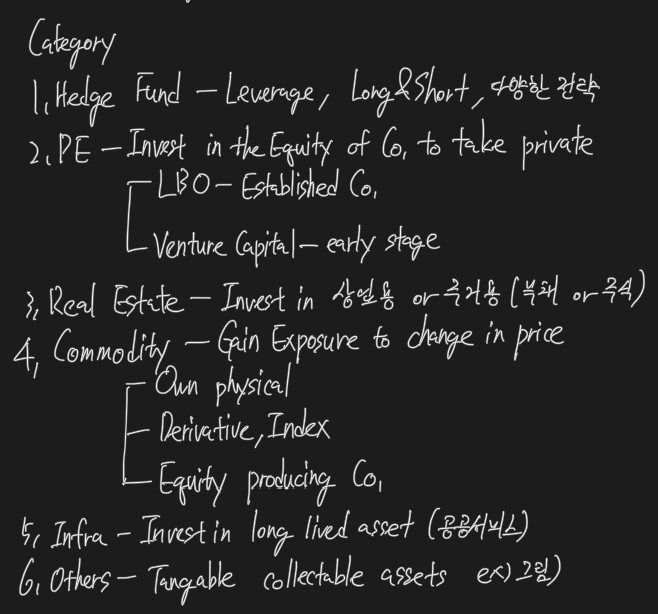 Category
1, Hedge Fund – Leverage, Long&Short, 다양한 전략
2, PE – Invest in the Equity of Co, to take private
LBO – Established Co,
Venture Capital – early stage
3, Real Estate – Invest in 상업용 or 주거용 (부채 or 주식)
4, Commodity – Gain Exposure to change in price
Own physical
Derivative, Index
Equity producing Co,
5, Infra – Invest in long lived asset (공공서비스)
6, Others – Tangable collectable assets ex) 그림)